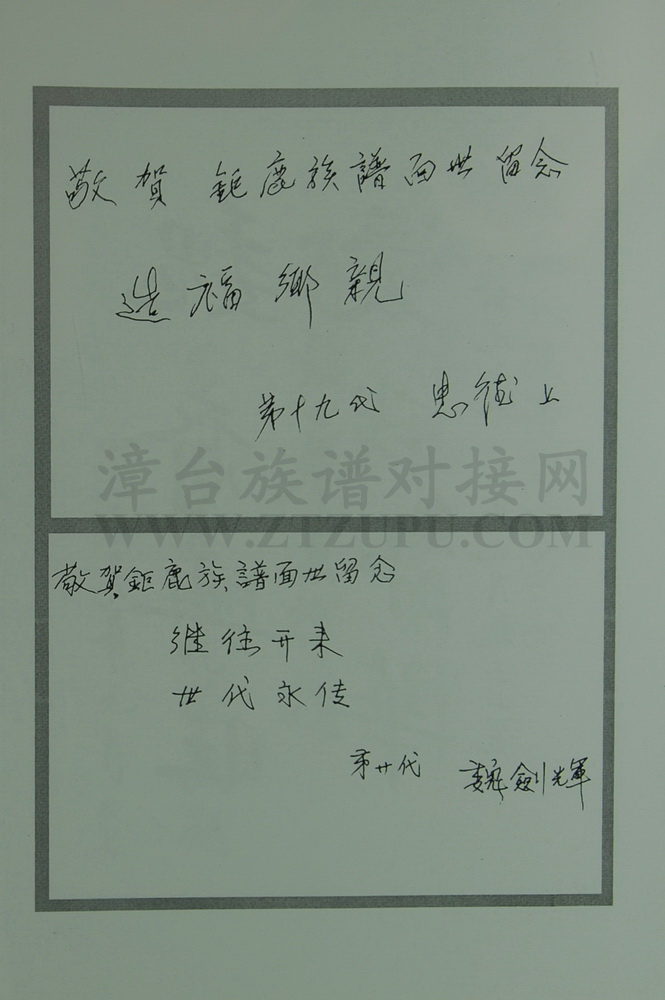 敬賀 鉅鹿族譜面世留念
造福鄉親
第十九代 忠德上
漳台族谱对接网
WWW.ZTZUPU.COM
敬賀鉅鹿族譜面世留念
继往开来
世代永传
第廿代 魏劍輝